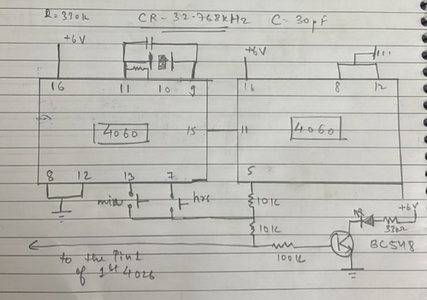 R=330k CR-32.768kHz C-30pF
+6V
+6V
16 11 10 9
16 8 12
4060 15 11 4060
8 12 13 7
5
min hrs
10k
10k
+6V
330Ω
100k
BC548
to the Pin1
of 1st 4026